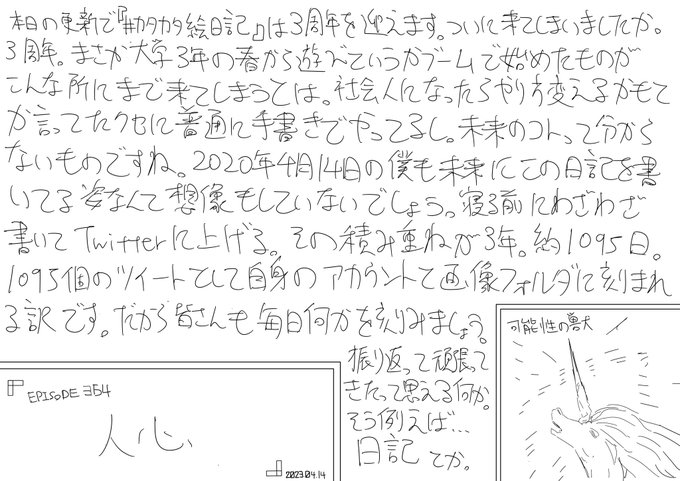 本日の更新で『#カタカタ絵日記』は3周年を迎えます。ついに来てしまいましたか。
3周年。まさか大学3年の春から遊びていうかブームで始めたものが
こんな所にまで来てしまうとは。社会人になったらやり方変えるかもて
か言ってたクセに普通に手書きでやってるし。未来のコトって分から
ないものですね。2020年4月14日の僕も未来にこの日記を書
いてる姿なんて想像もしていないでしょう。寝る前にわざわざ
書いてTwitterに上げる。その積み重ねが3年。約1095日。
1095個のツイートとして自身のアカウントて画像フォルダに刻まれ
る訳です。だから皆さんも毎日何かを刻みましょう。
振り返って頑張って
きたって思える何か。
そう例えば…
日記 てか。
EPISODE 364
人心
2023.04.14
可能性の獣犬